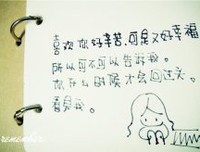 喜欢你好辛苦,可是又好幸福
所以可不可以告诉我
你什么时候才会回过头。
看见我。
remember